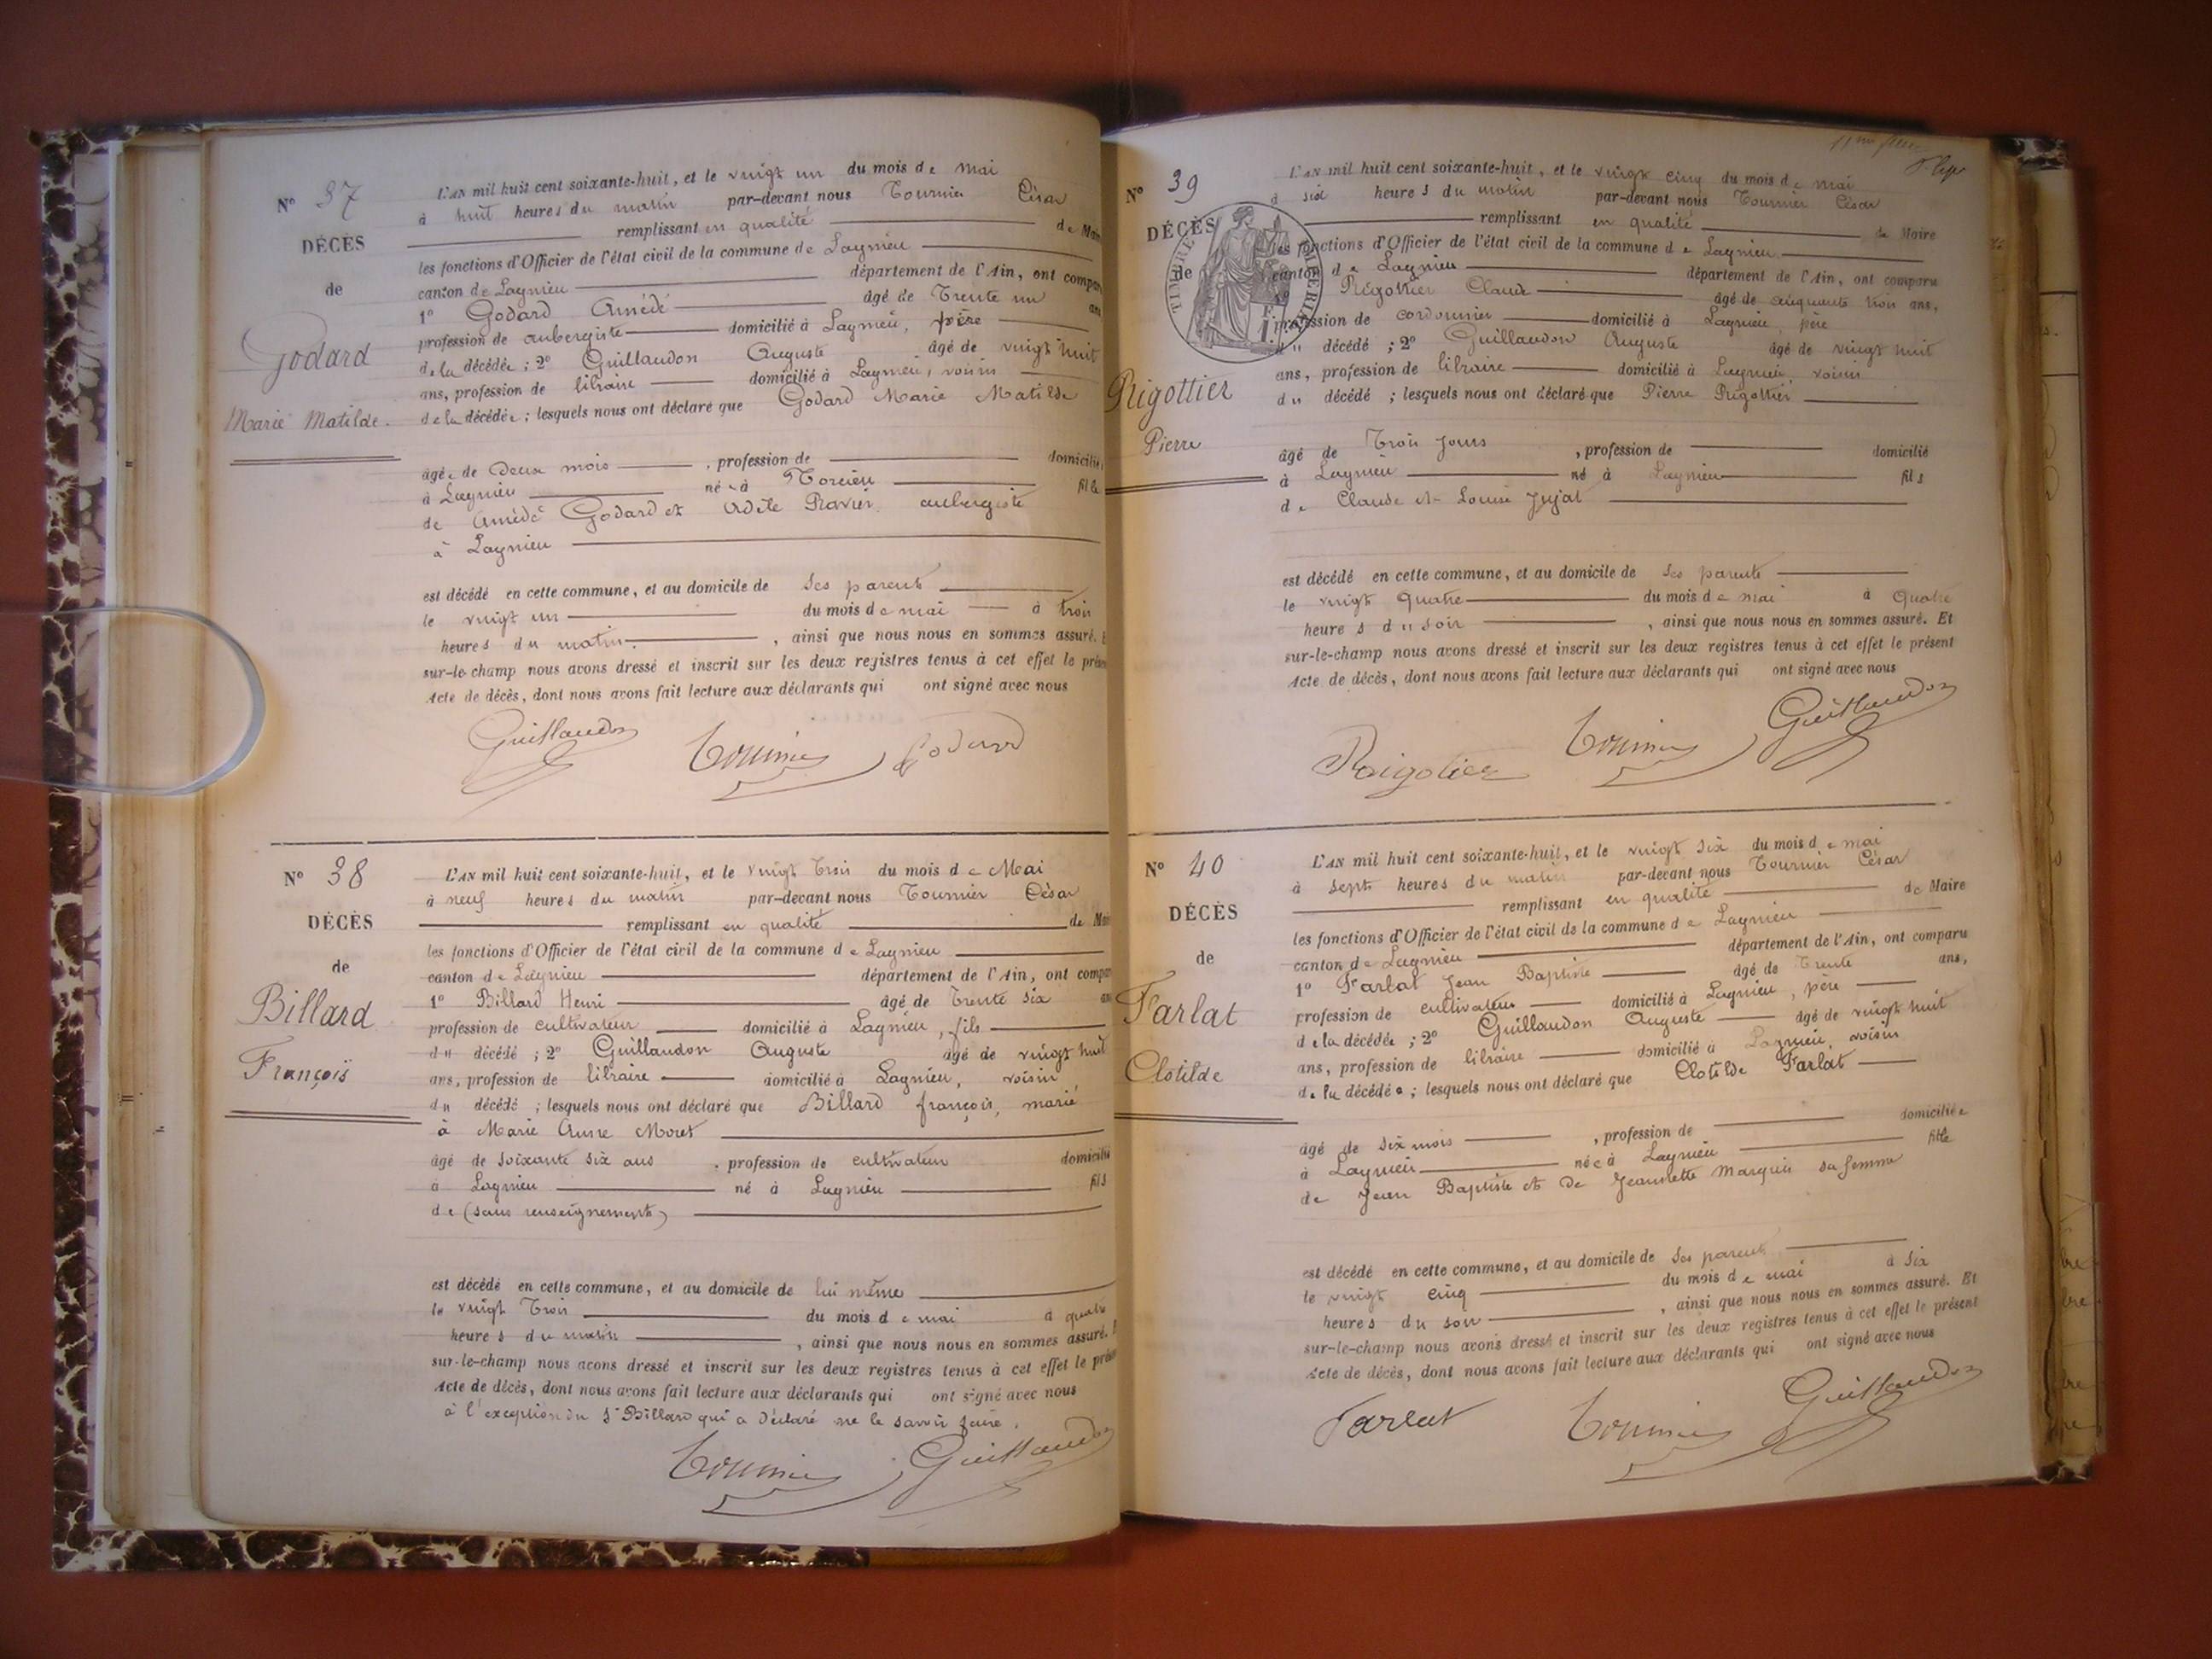 N° 37
DÉCÈS
de
Godard
Marie Matilde.
L'AN mil huit cent soixante-huit, et le vingt un du mois de Mai
à huit heures du matin par-devant nous Tournier César
remplissant en qualité de Maire
les fonctions d'Officier de l'état civil de la commune de Lagnieu
canton de Lagnieu département de l'Ain, ont comparu
1° Godard Amédé âgé de Trente un ans
profession de aubergiste domicilié à Lagnieu, père
de la décédée ; 2° Guillaudon Auguste âgé de vingt huit
ans, profession de libraire domicilié à Lagnieu, voisin
de la décédée ; lesquels nous ont déclaré que Godard Marie Matilde
âgée de Deux mois , profession de domiciliée
à Lagnieu née à Torcieu fille
de Amédé Godard et Adèle Ravier, aubergiste
à Lagnieu
est décédé en cette commune, et au domicile de ses parents
le vingt un du mois de mai à trois
heures du matin. , ainsi que nous nous en sommes assuré. E
sur-le-champ nous avons dressé et inscrit sur les deux registres tenus à cet effet le présen
Acte de décès, dont nous avons fait lecture aux déclarants qui ont signé avec nous
Guillaudon Tournier Godard
N° 38
DÉCÈS
de
Billard
François
L'AN mil huit cent soixante-huit, et le vingt Trois du mois de Mai
à neuf heures du matin par-devant nous Tournier César
remplissant en qualité de Mai
les fonctions d'Officier de l'état civil de la commune de Lagnieu
canton de Lagnieu département de l'Ain, ont compar
1° Billard Henri âgé de Trente six ans
profession de cultivateur domicilié à Lagnieu, fils
du décédé ; 2° Guillaudon Auguste âgé de vingt huit
ans, profession de libraire domicilié à Lagnieu, voisin
du décédé ; lesquels nous ont déclaré que Billard françois, marié
à Marie Anne Moret
âgé de soixante six ans , profession de cultivateur domicilié
à Lagnieu né à Lagnieu fils
de (sans renseignements)
est décédé en cette commune, et au domicile de lui même
le vingt Trois du mois de mai à quatre
heures du matin , ainsi que nous nous en sommes assuré. E
sur-le-champ nous avons dressé et inscrit sur les deux registres tenus à cet effet le prése
Acte de décès, dont nous avons fait lecture aux déclarants qui ont signé avec nous
à l'exception du Sr Billard qui a déclaré ne le savoir faire.
Tournier Guillaudon
N° 39
DÉCÈS
de
Rigottier
Pierre
TIMBRE IMPÉRIAL
L'AN mil huit cent soixante-huit, et le vingt cinq du mois de mai
à six heures du matin par-devant nous Tournier César
remplissant en qualité de Maire
les fonctions d'Officier de l'état civil de la commune de Lagnieu
canton de Lagnieu département de l'Ain, ont comparu
1° Rigottier Claude âgé de cinquante trois ans,
profession de cordonnier domicilié à Lagnieu, père
du décédé ; 2° Guillaudon Auguste âgé de vingt huit
ans, profession de libraire domicilié à Lagnieu, voisin
du décédé ; lesquels nous ont déclaré que Pierre Rigottier
âgé de Trois jours , profession de domicilié
à Lagnieu né à Lagnieu fils
de Claude et Louise Jujat
est décédé en cette commune, et au domicile de ses parents
le vingt quatre du mois de mai à quatre
heures du soir , ainsi que nous nous en sommes assuré. Et
sur-le-champ nous avons dressé et inscrit sur les deux registres tenus à cet effet le présent
Acte de décès, dont nous avons fait lecture aux déclarants qui ont signé avec nous
Rigotier Tournier Guillaudon
N° 40
DÉCÈS
de
Farlat
Clotilde
L'AN mil huit cent soixante-huit, et le vingt six du mois de mai
à sept heures du matin par-devant nous Tournier César
remplissant en qualité de Maire
les fonctions d'Officier de l'état civil de la commune de Lagnieu
canton de Lagnieu département de l'Ain, ont comparu
1° Farlat Jean Baptiste âgé de Trente ans,
profession de cultivateur domicilié à Lagnieu, père
de la décédée ; 2° Guillaudon Auguste âgé de vingt huit
ans, profession de libraire domicilié à Lagnieu, voisin
de la décédée ; lesquels nous ont déclaré que Clotilde Farlat
âgé de six mois , profession de domiciliée
à Lagnieu née à Lagnieu fille
de Jean Baptiste et de Jeannette Marguin sa femme
est décédé en cette commune, et au domicile de ses parents
le vingt cinq du mois de mai à six
heures du soir , ainsi que nous nous en sommes assuré. Et
sur-le-champ nous avons dressé et inscrit sur les deux registres tenus à cet effet le présent
Acte de décès, dont nous avons fait lecture aux déclarants qui ont signé avec nous
Farlat Tournier Guillaudon